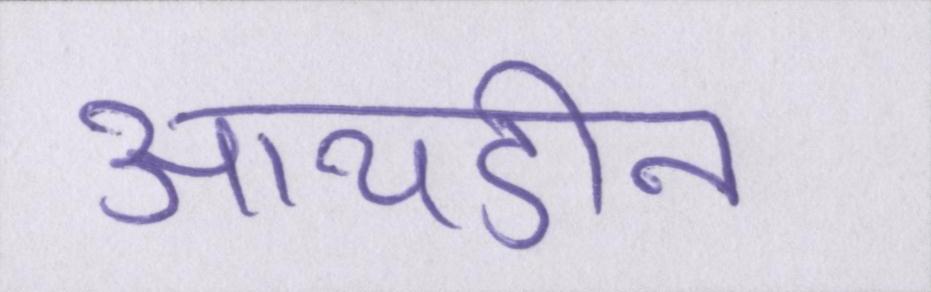 आयडीन